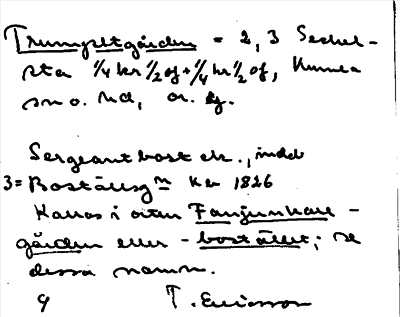 Trumpetgården = 2, 3 Seckel-
sta 1/4 kr 1/2 of + 1/4 kr 1/2 of, Husna
sn o. hd,
Sergeantbost
3 = Boställsg m Ka 1826
Kallas i orten Fanjunkare-
gården eller -bostället; se
dessa namn.
T. Ericsson